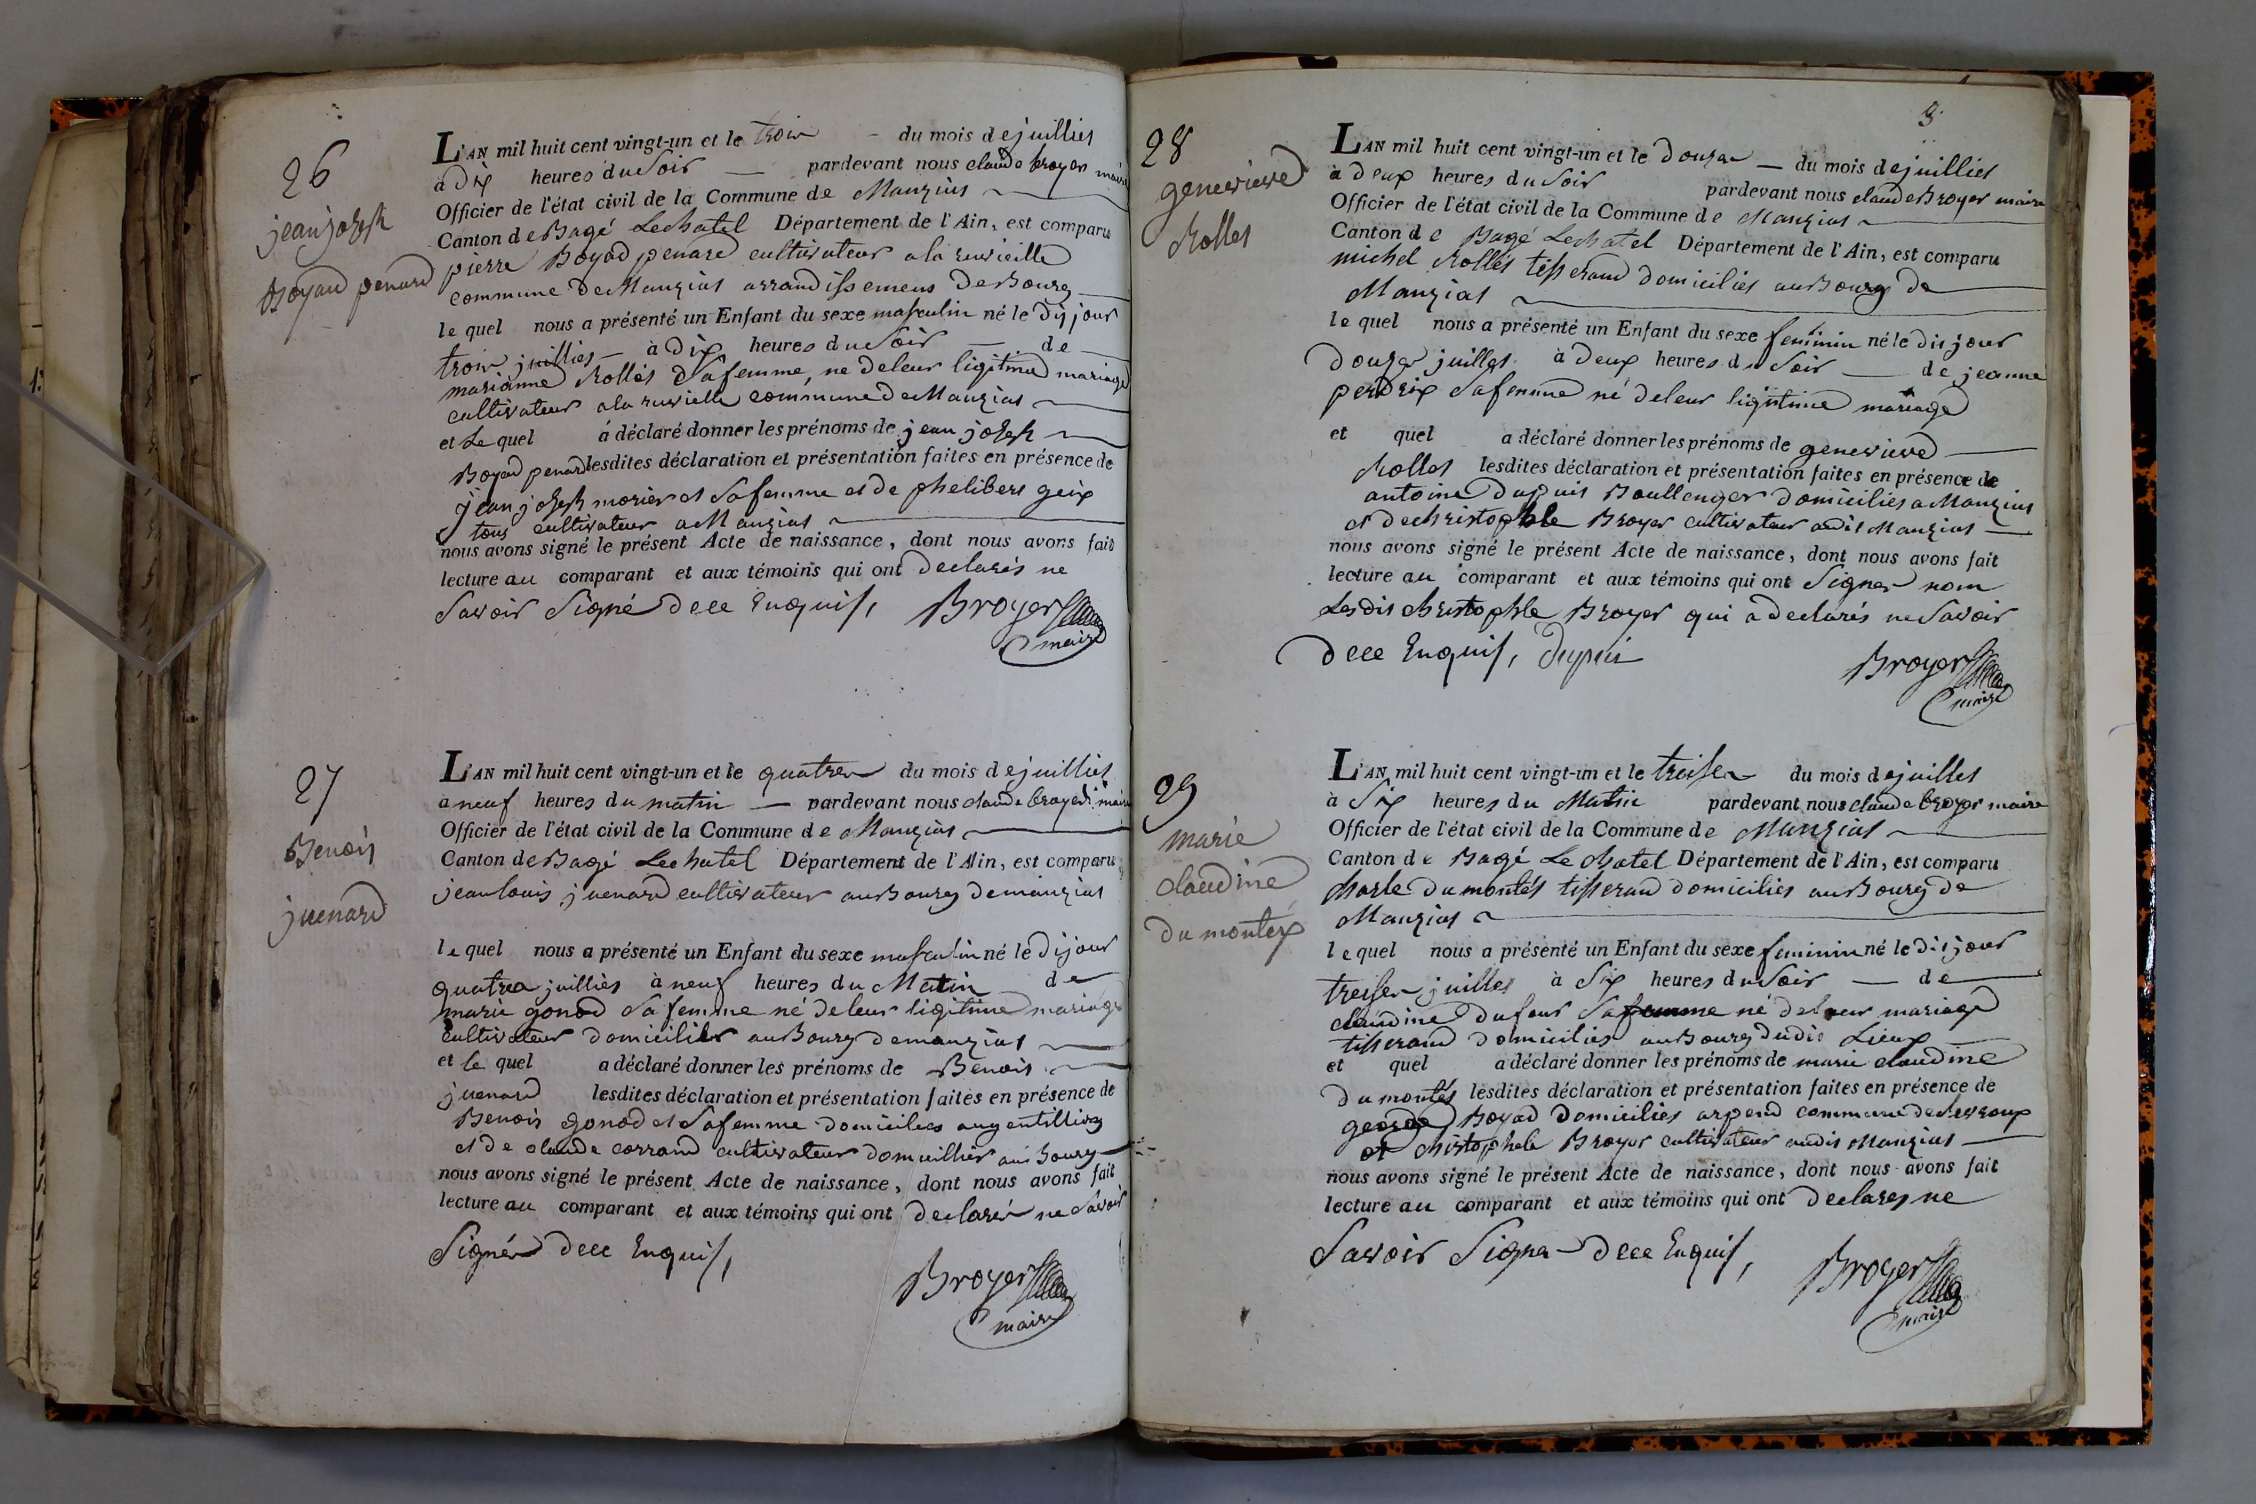 26
jean joseph
Boyard penard
L'AN mil huit cent vingt-un et le trois - du mois de juilliet
à Dix heures du Soir — pardevant nous claude broyer maire
Officier de l'état civil de la Commune de Manziat
Canton de Bagé Lechatel Département de l'Ain, est comparu
pierre Boyad penard cultivateur a la ruvieille
commune De Manziat arrandissemens De Bourg
le quel nous a présenté un Enfant du sexe masculin né le Dij jour
trois juilliet — à Dix heures du Soir — de
marianne Rollet Sa femme, ne deleur ligitime mariage
cultivateur ala ruvielle commune de Manziat
et Le quel a déclaré donner les prénoms de jean joseph
Boyad penard lesdites déclaration et présentation faites en présence de
jean joseph morier et Sa femme et de phelibert geix
tous cultivateur a Manziat
nous avons signé le présent Acte de naissance, dont nous avons fait
lecture au comparant et aux témoins qui ont declarés ne
Savoir Signé Dece Enquis, Broyer
maire
27
Benois
juenard
L'AN mil huit cent vingt-un et le quatre du mois de juilliet
a neuf heures du matin — pardevant nous claude broyer maire
Officier de l'état civil de la Commune de Manziat
Canton de Bagé Lechatel Département de l'Ain, est comparu
jean louis juenard cultivateur au Bourg de manziat
le quel nous a présenté un Enfant du sexe masculin né le Dijour
quatre juilliet à neuf heures du Matin de
marie gonod Sa femme né de leur ligitime mariage
cultivateur domicilier au Bourg demanziat
et le quel a déclaré donner les prénoms de Benois
juenard lesdites déclaration et présentation faites en présence de
Benois gonod et Sa femme domicilies au gentillivy
et de claude corrand cultivateur domicillier au Bourg
nous avons signé le présent Acte de naissance, dont nous avons fait
lecture au comparant et aux témoins qui ont declarés ne Savoir
Signér Dece Enquis,
Broyer
maire
3.
28
genevieve
Rollet
L'AN mil huit cent vingt-un et le douze — du mois de juilliet
à Deux heures du Soir pardevant nous claude Broyer maire
Officier de l'état civil de la Commune de Manziat
Canton de Bagé Lechatel Département de l'Ain, est comparu
michel Rollet tisserand domicilies au Bourg de
Manziat
le quel nous a présenté un Enfant du sexe feminin né le Dis jour
Douze juillet à Deux heures du Soir — de jeanne
perdrix Sa femme né deleur ligitime mariage
et quel a déclaré donner les prénoms de genevieve
Rollet lesdites déclaration et présentation faites en présence de
antoine Dupuis Boullenger domicilies a Manziat
et de christophle Broyer cultivateur audit Manziat
nous avons signé le présent Acte de naissance, dont nous avons fait
lecture au comparant et aux témoins qui ont Signer nom
Ledis christophle Broyer qui a declarés ne Savoir
Dece Enquis, Dupuis
Broyer
maire
29
marie
claudine
du montex
L'AN mil huit cent vingt-un et le treise du mois de juillet
à Six heures du Matin pardevant nous claude broyer maire
Officier de l'état civil de la Commune de Manziat
Canton de Bagé Le chatel Département de l'Ain, est comparu
charle du montés tisseran domicilies au Bourg de
Manziat
le quel nous a présenté un Enfant du sexe feminin né le Dis jour
treise juillet à Six heures du Soir — de
claudine Dufour Sa femme né deleur mariage
tisserand domicilies au Bourg dudis Lieux
et quel a déclaré donner les prénoms de marie claudine
du montés lesdites déclaration et présentation faites en présence de
george Boyad Domicilies arpend commune de
et christophele Broyer cultivateur audis Manziat
nous avons signé le présent Acte de naissance, dont nous avons fait
lecture au comparant et aux témoins qui ont declares ne
Savoir Signer Dece Enquis,
Broyer
maire